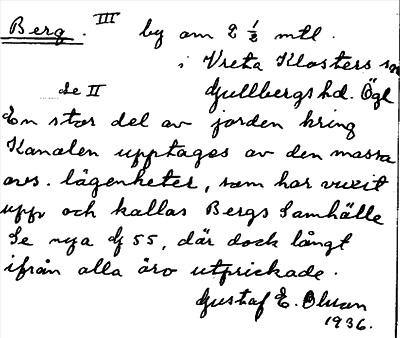 Berg. III by om 2 1/2 mtl.
i Vreta Klosters sn
Se II Gullbergs hd. Ögl
En stor del av jorden kring
Kanalen upptages av den massa
avs. lägenheter, som har vuxit
upp och kallas Bergs Samhälle
Se nya 55, där dock långt
ifrån alla äro utprickade.
Gustaf E. Olsson
1936.